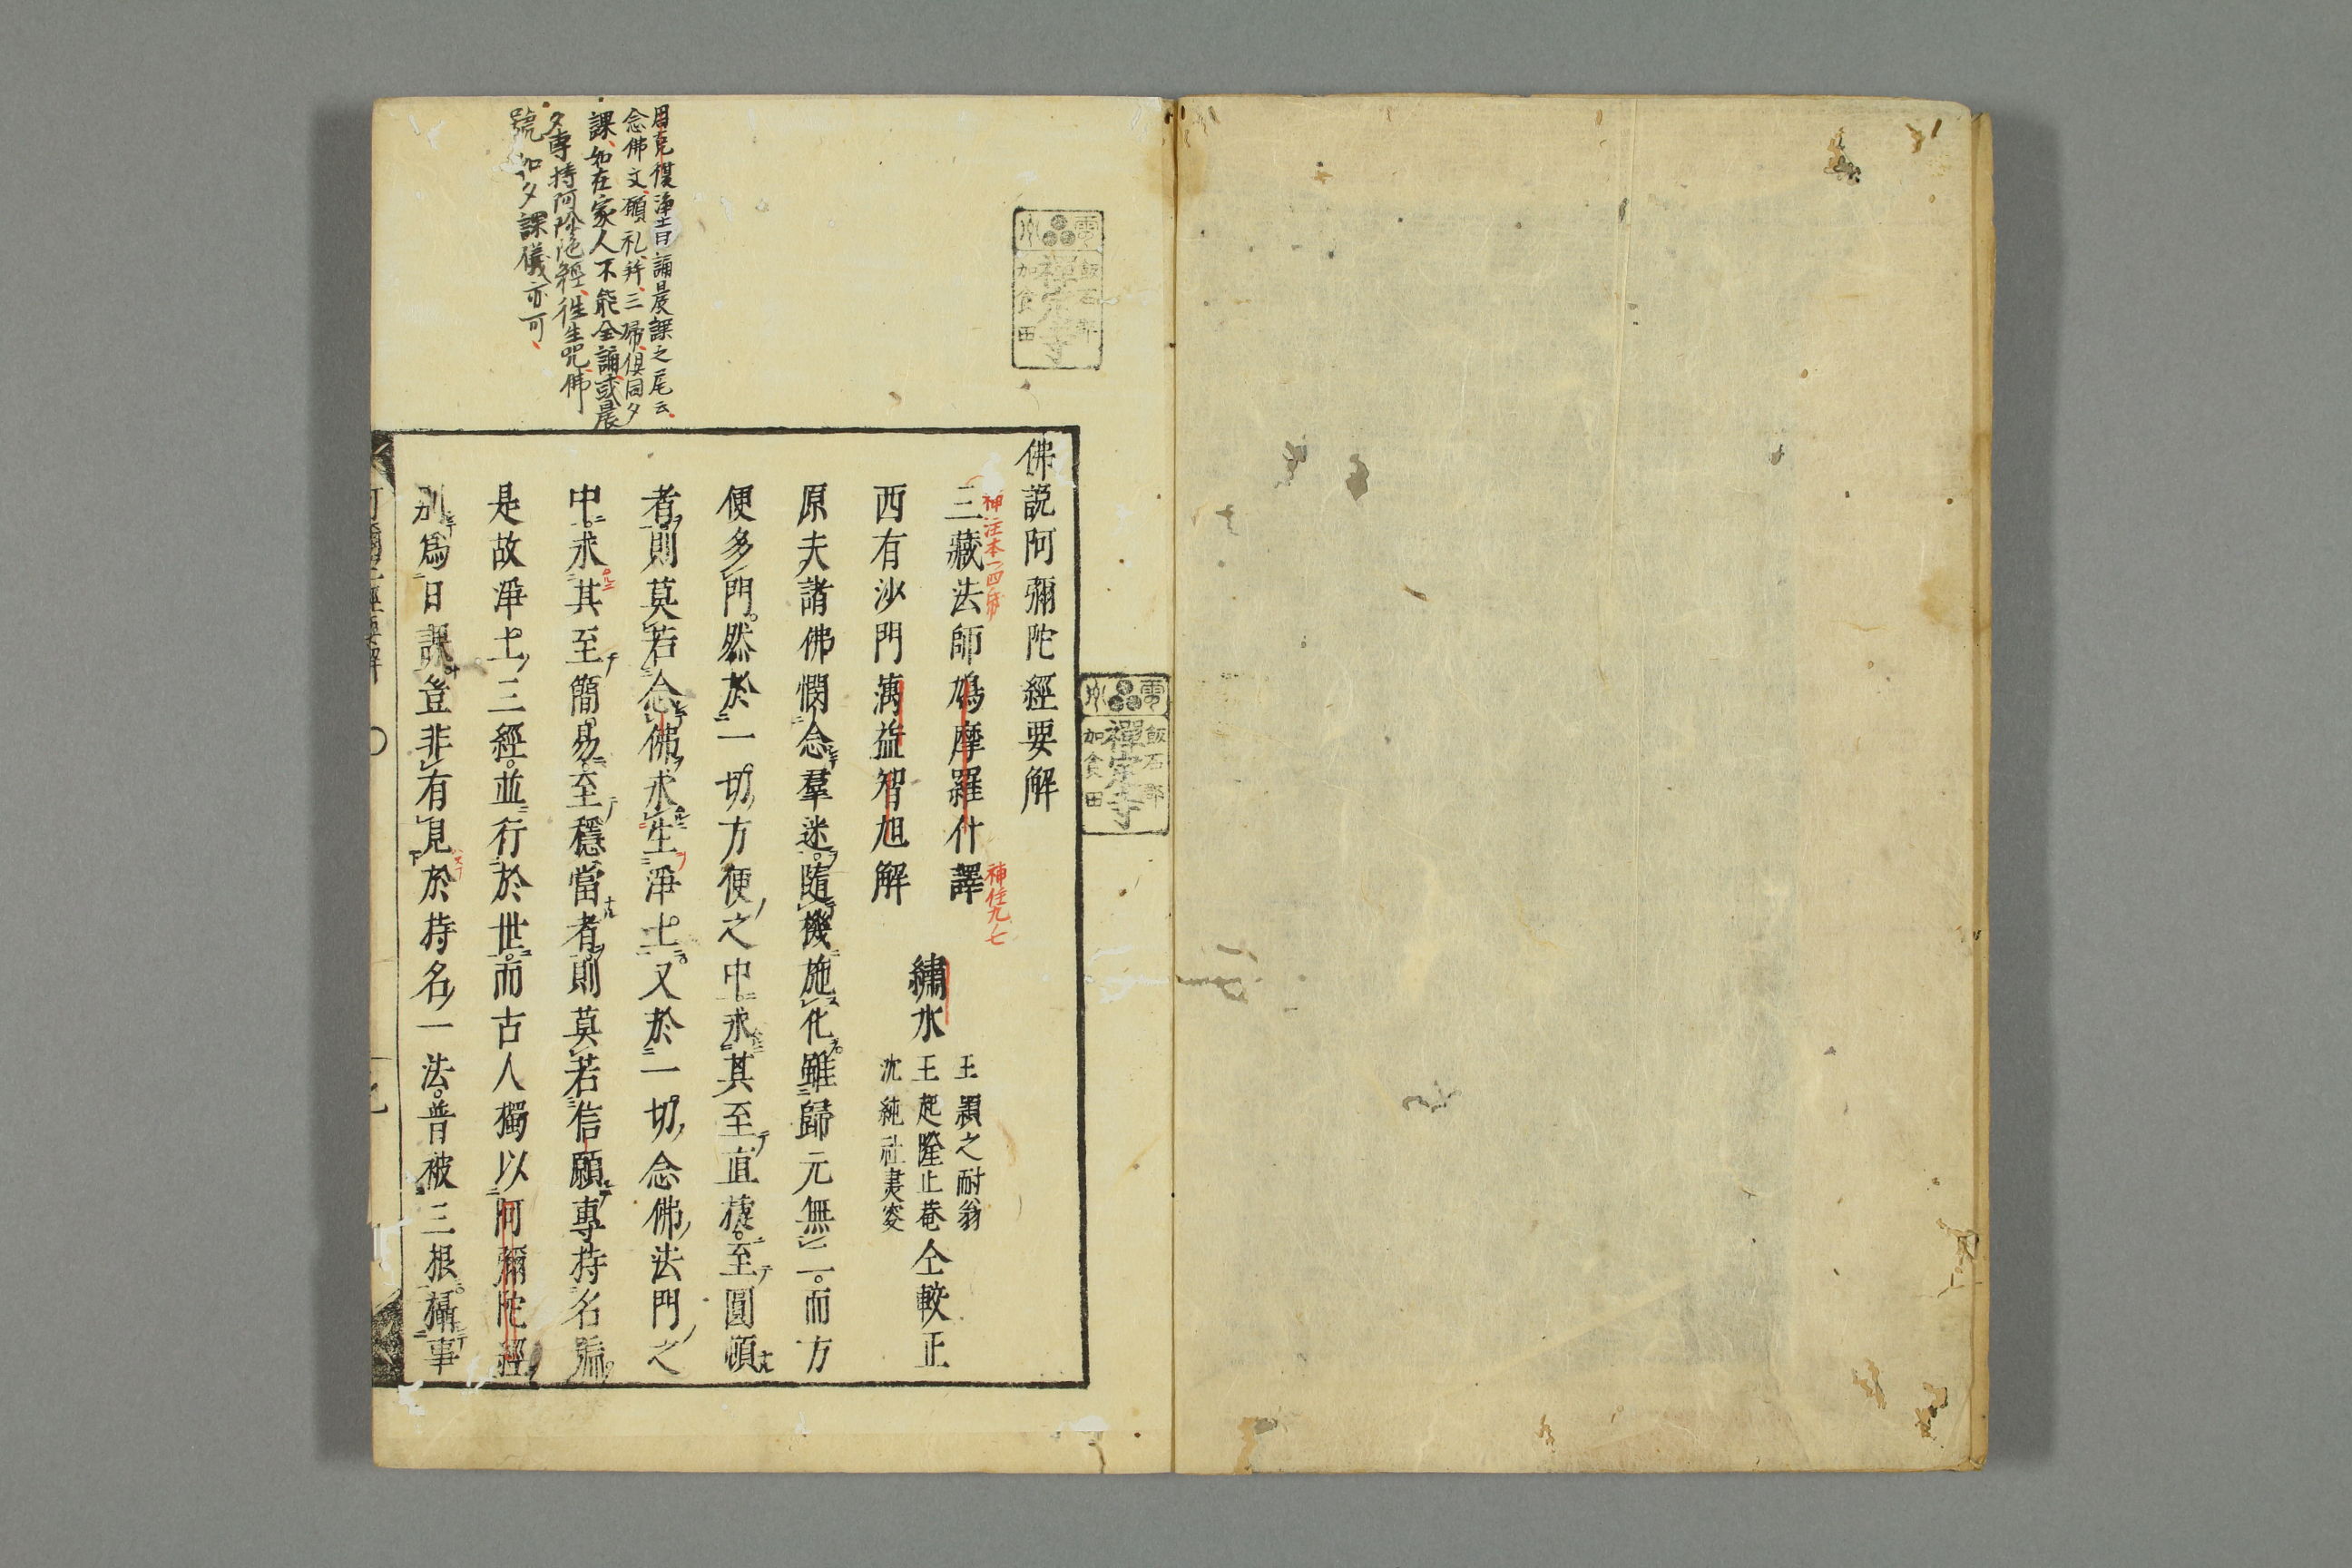 佛説阿彌陀經要解
三藏法師鳩摩羅什譯
西有沙門蕅益智旭解
繡水
王穎之耐翁
王起隆止菴
沈純祉
仝較正
原夫諸佛憫念羣迷隨機施化雖歸元無二而方
便多門然於一切方便之中求其至直捷至圓頓
者則莫若念佛求生淨土又於一切念佛法門之
中求其至簡易至穩當者則莫若信願專持名號
是故淨土三經並行於世而古人獨以阿彌陀經
列爲日課豈非有見於持名一法普被三根攝事
復淨土曰誦晨課之尾云
念佛文願礼并三帰俱同夕
課如在家人不能全誦或晨
夕専持阿弥陀經徃生咒佛
號如夕課儀亦可
禪定寺
雲州
飯石郡
禪定寺
雲州
飯石郡